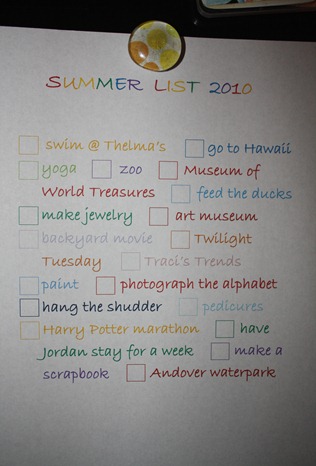 SUMMER LIST 2010
swim @ Thelma's go to Hawaii
yoga zoo Museum of
World Treasures feed the ducks
make jewelry art museum
backyard movie Twilight
Tuesday Traci's Trends
paint photograph the alphabet
hang the shudder pedicures
Harry Potter marathon have
Jordan stay for a week make a
scrapbook Andover waterpark